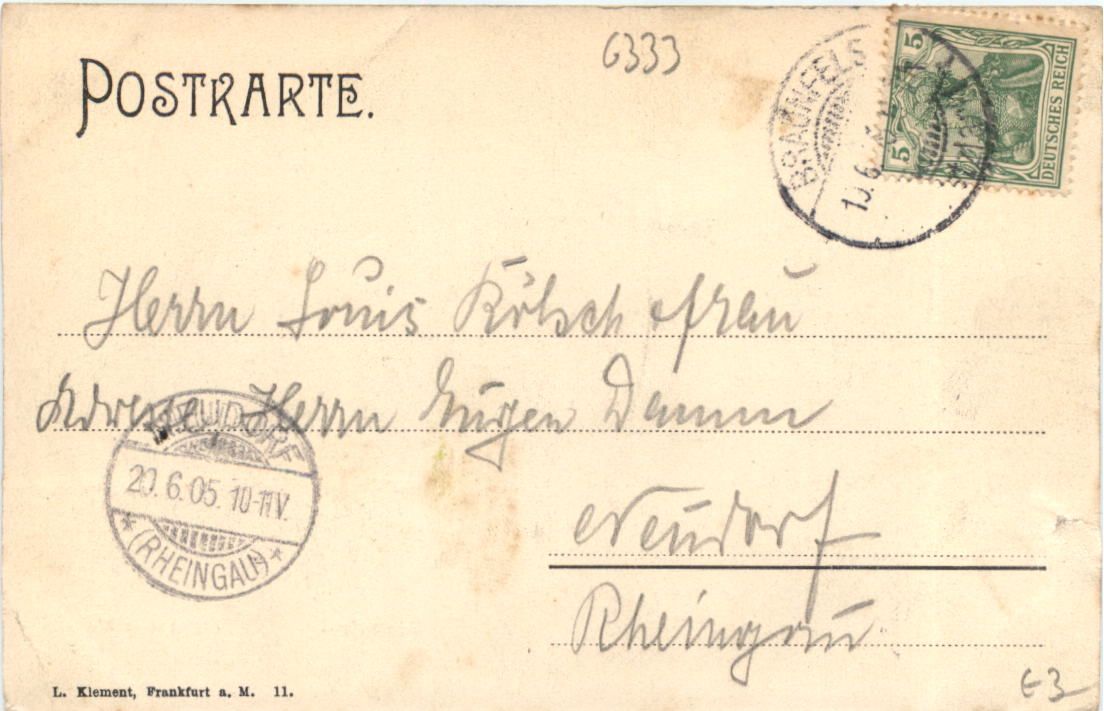 POSTKARTE.
6333
BRAUNFELS
5
5
DEUTSCHES REICH
Herrn Louis Kölsch Frau
Adresse Herrn Eugen Damm
NEUDORF
20.6.05. 10-11V.
* (RHEINGAU) *
Neudorf
Rheingau
L. Klement, Frankfurt a. M. 11.
E3